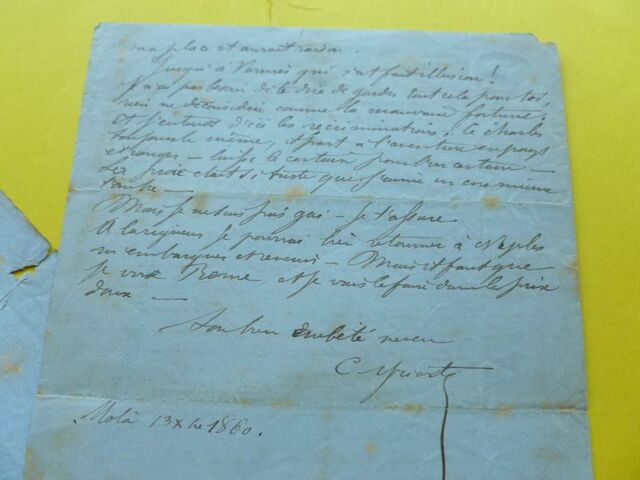 ma place et auront raison.
Jusqu'à Vannes qui s'est fait illusion !
Je n'ai pas besoin de te dire de garder tout cela pour toi,
rien ne déconsidère comme la mauvaise fortune.
Et j'entends d'ici les récriminations, le Charles
toujours le même, il part à l'aventure en pays
étranger – laisse le certain pour l'incertain –
tu
Mais je ne suis pas gai – je t'assure
A la rigueur je pourrai bien retourner à Naples
m'embarquer et revenir – Mais il faut que
je voie Rome et je vais le faire dans le prix
doux –
Ton bien embêté neveu
C Yriarte
Mola 13 Xbre 1860.